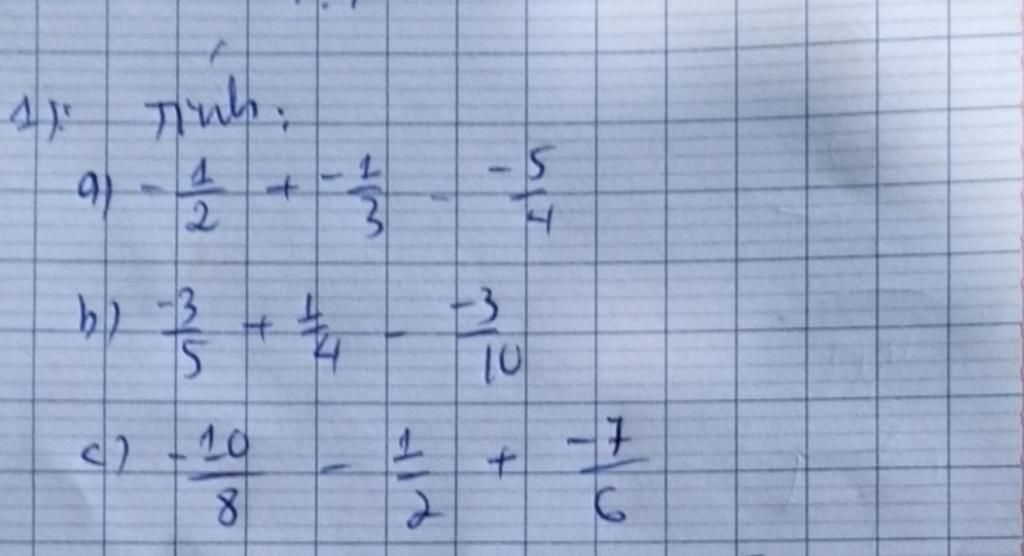 1): Tính:
a) - 1/2 + -1/3 - -5/4
b) -3/5 + 1/4 - -3/10
c) -10/8 - 1/2 + -7/6